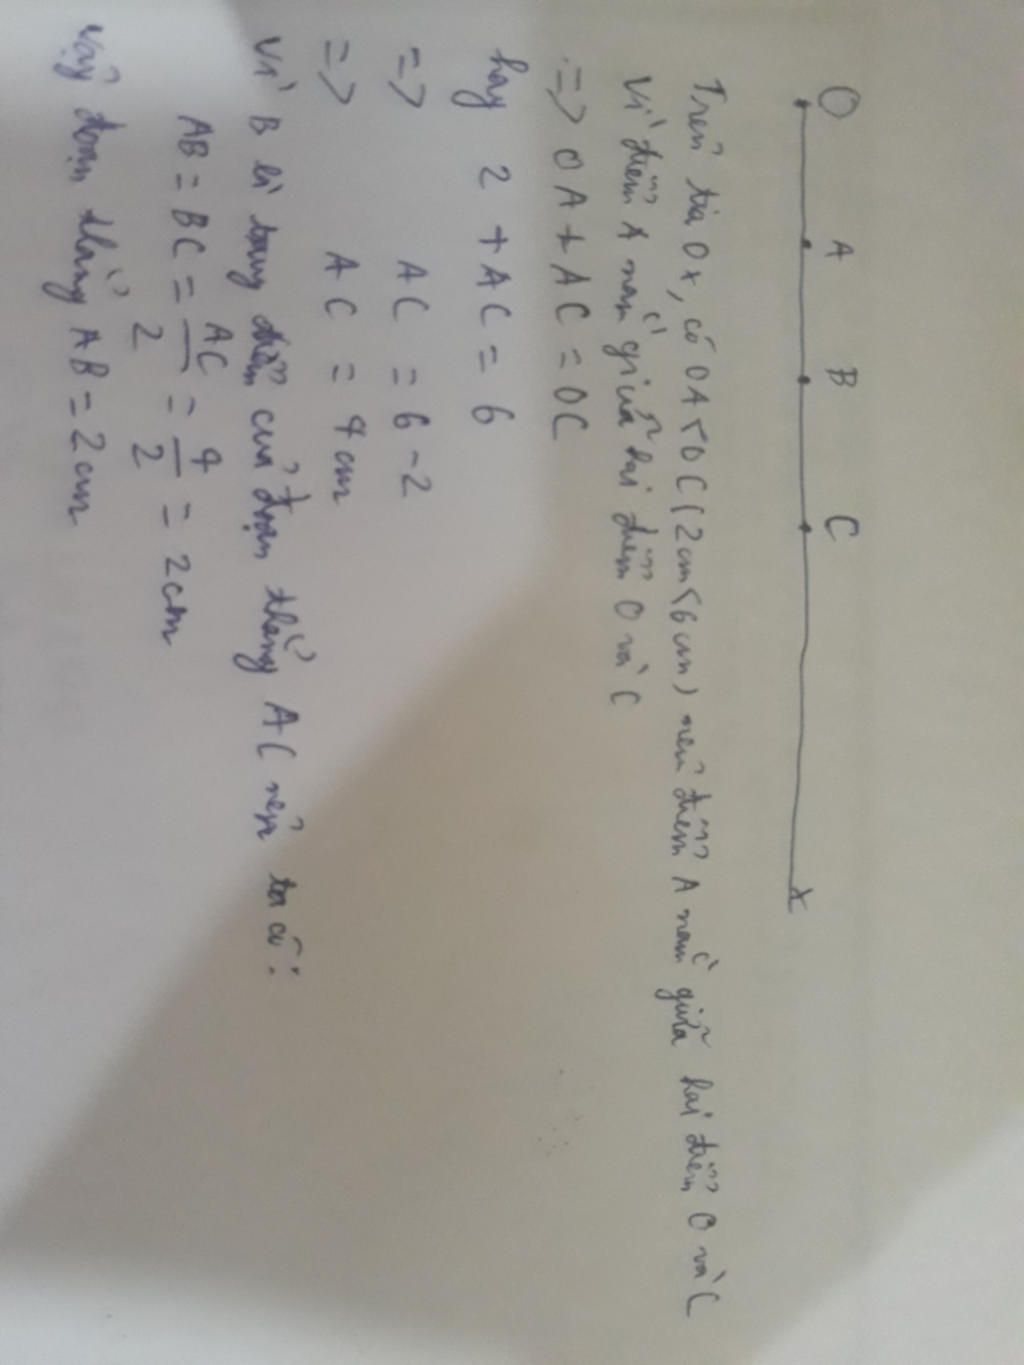 O A B C x
Trên tia Ox, có OA < OC (2cm < 6cm) nên điểm A nằm giữa hai điểm O và C
Vì điểm A nằm giữa hai điểm O và C
=> OA + AC = OC
hay 2 + AC = 6
=> AC = 6 - 2
=> AC = 4cm
Vì B là trung điểm của đoạn thẳng AC nên ta có:
AB = BC = AC/2 = 4/2 = 2cm
Vậy đoạn thẳng AB = 2cm